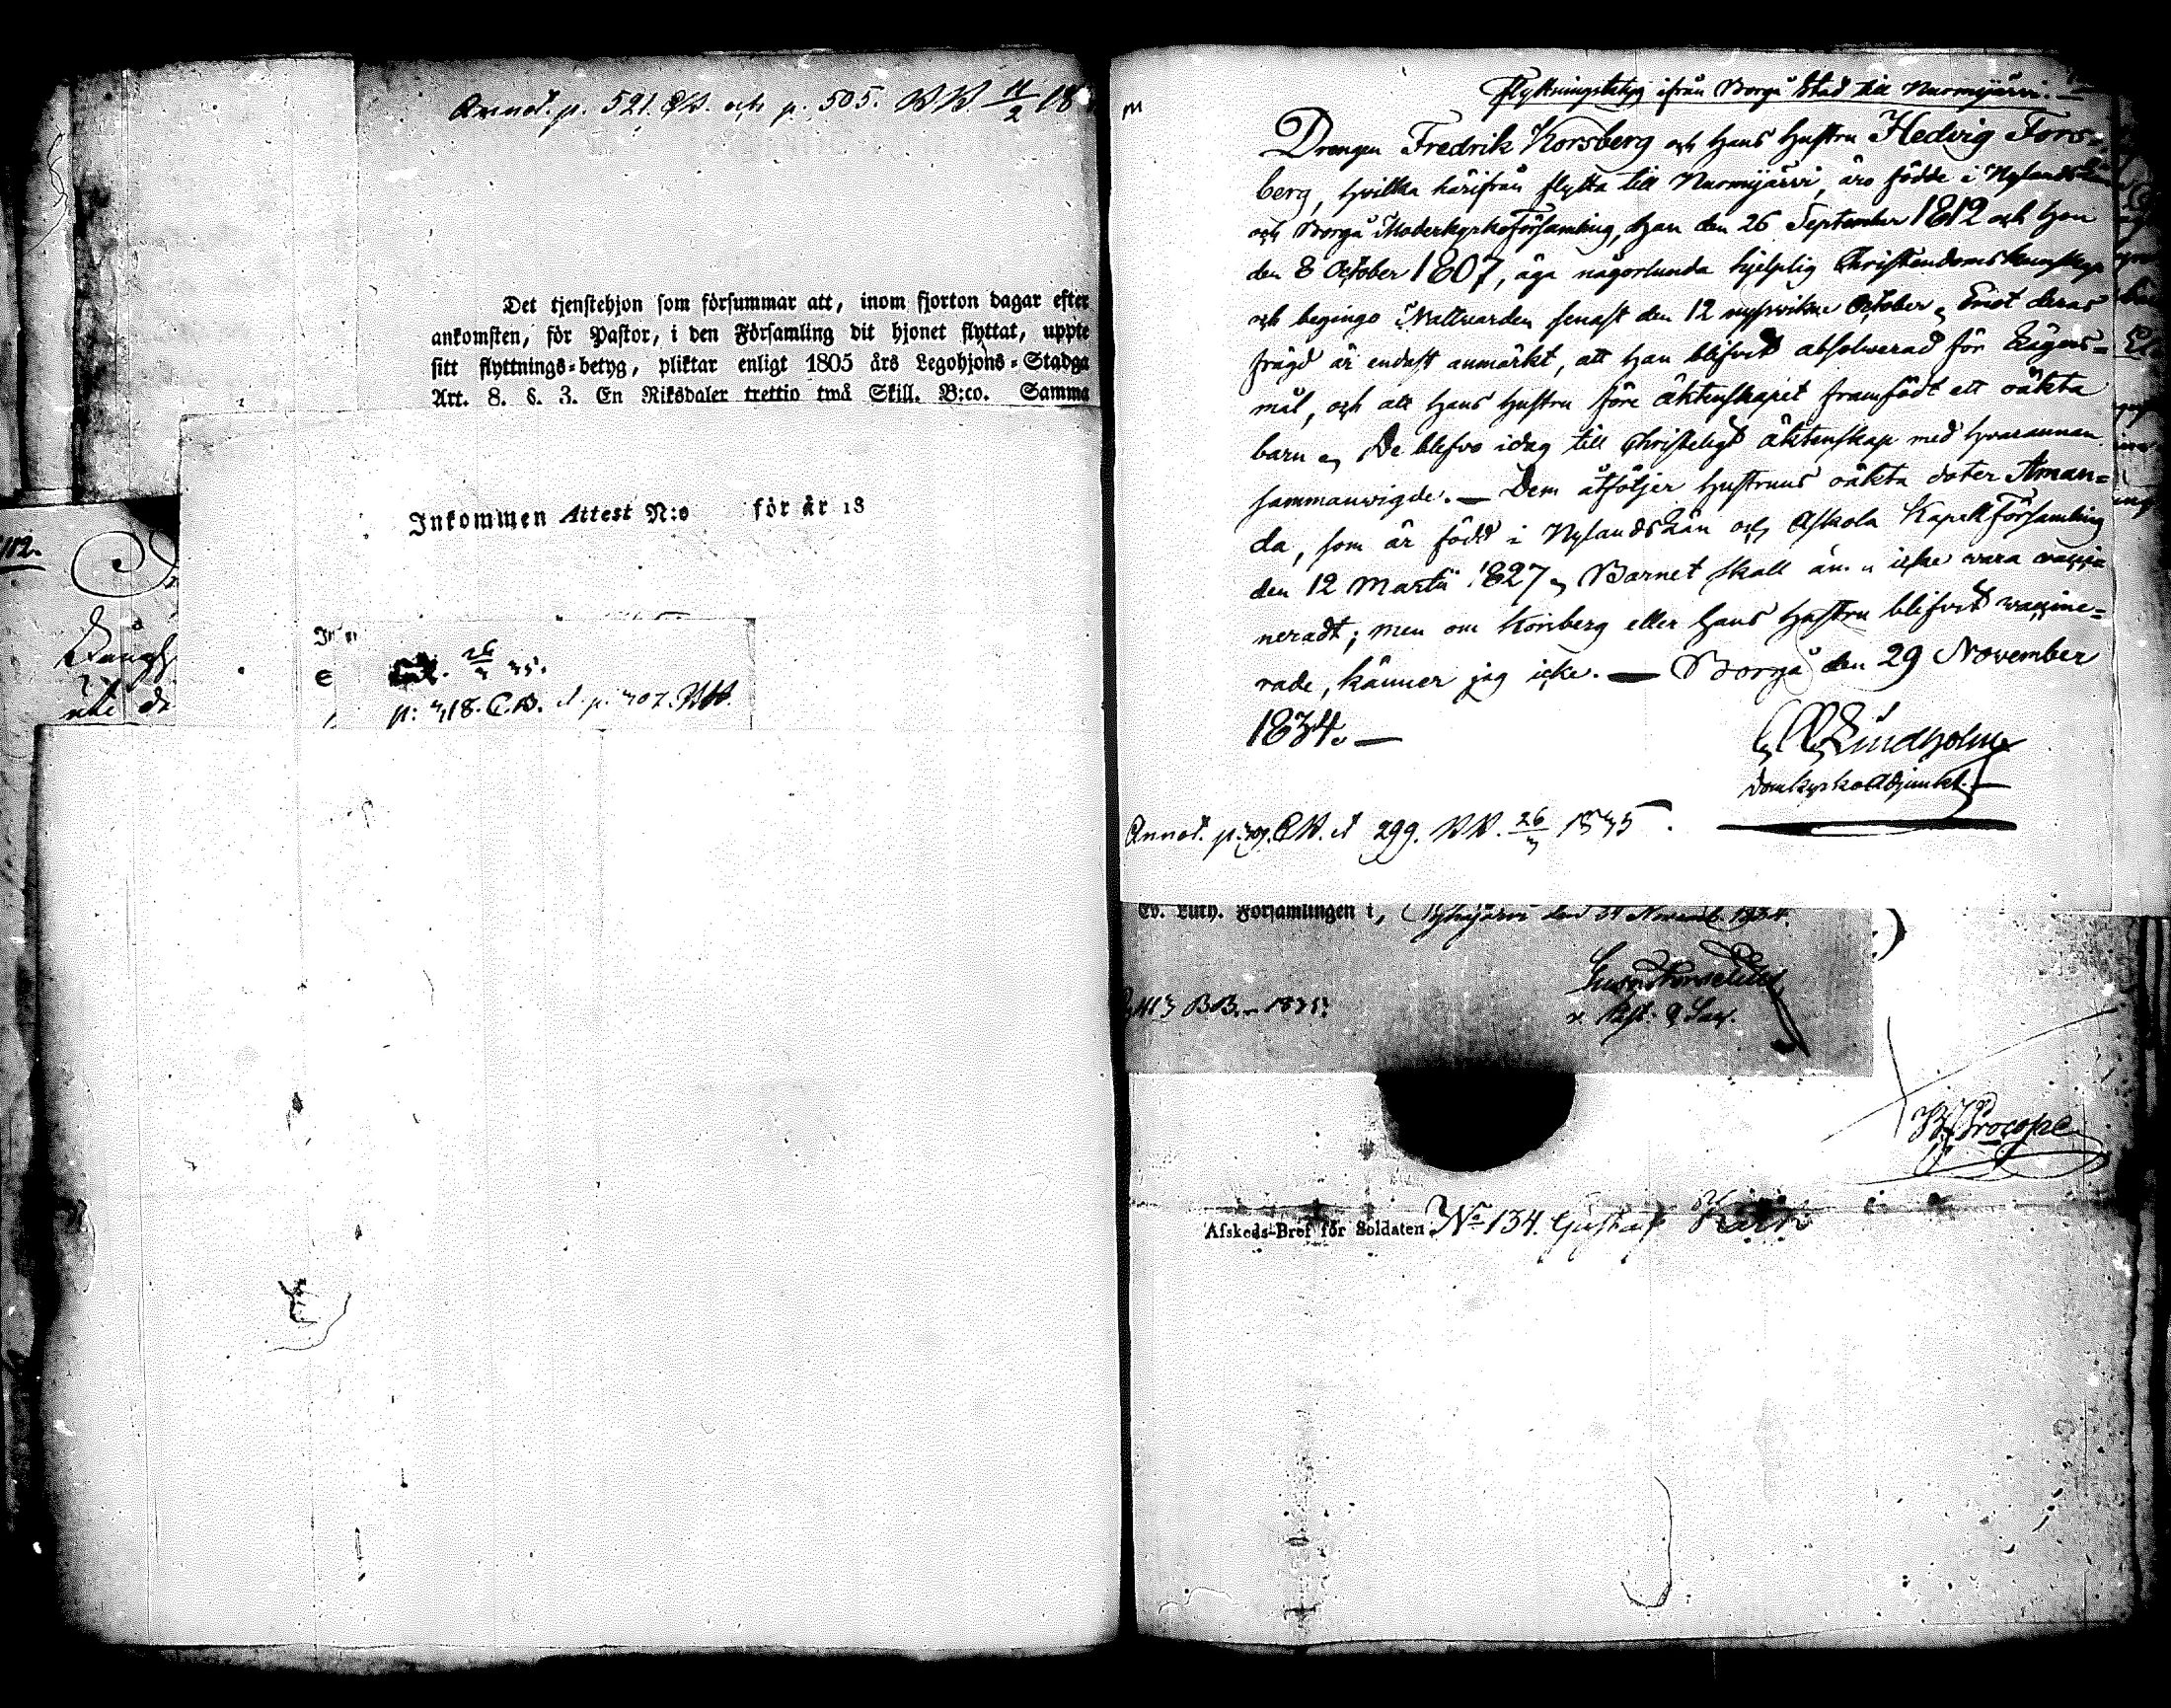 Annot. p. 521. CB. och p. 505. BB. 11/2 18
Det tjenstehjon som försummar att, inom fjorton dagar efter
ankomsten, för Pastor, i den Församling dit hjonet flyttat, uppte
sitt flyttnings-betyg, pliktar enligt 1805 års Legohjons-Stadga
Art. 8. §. 3. En Riksdaler trettio två Skill. B:co. Samma
Inkommen Attest N:o för år 18
112.
26/3 35.
p: 318. C.B. et p. 307. BB.
Flyttningsbetyg ifrån Borgå Stad till Nurmijärvi. —
Drengen Fredrik Korsberg och hans hustru Hedvig Fors-
berg, hvilka härifrån flytta till Nurmijärvi, äro födde i Nylands Län
och Borgå Moderkyrko Församling, han den 26 September 1812 och hon
den 8 October 1807, äga någorlunda hjelplig Christendomskunskap
och begingo Nattvarden senast den 12 nystvikne October. Emot deras
frägd är endast anmärkt, att han blifvit absolverad för Lägers-
mål, och att hans hustru före äktenskapet framfödt ett oäkta
barn. De blefvo idag till Christeligt äktenskap med hvarannan
sammanvigde. — Dem åtföljer hustruns oäkta doter Aman-
da, som är född i Nylands Län och Askola Kapell Församling
den 12 Martii 1827. Barnet skall än icke vara vacci
neradt; men om Korsberg eller hans hustru blifvit vaccine-
rade, känner jag icke. — Borgå den 29 November
1834. —
Lindholm
Domkyrkoadjunkt. —
Annot. p. CB. et 299. BB. 26/3 1835.
Ev. Luth. Församlingen i, den Novemb. 1834.
BB. 1835.
Procopé
Afskeds-Bref för Soldaten No 134. Gustaf